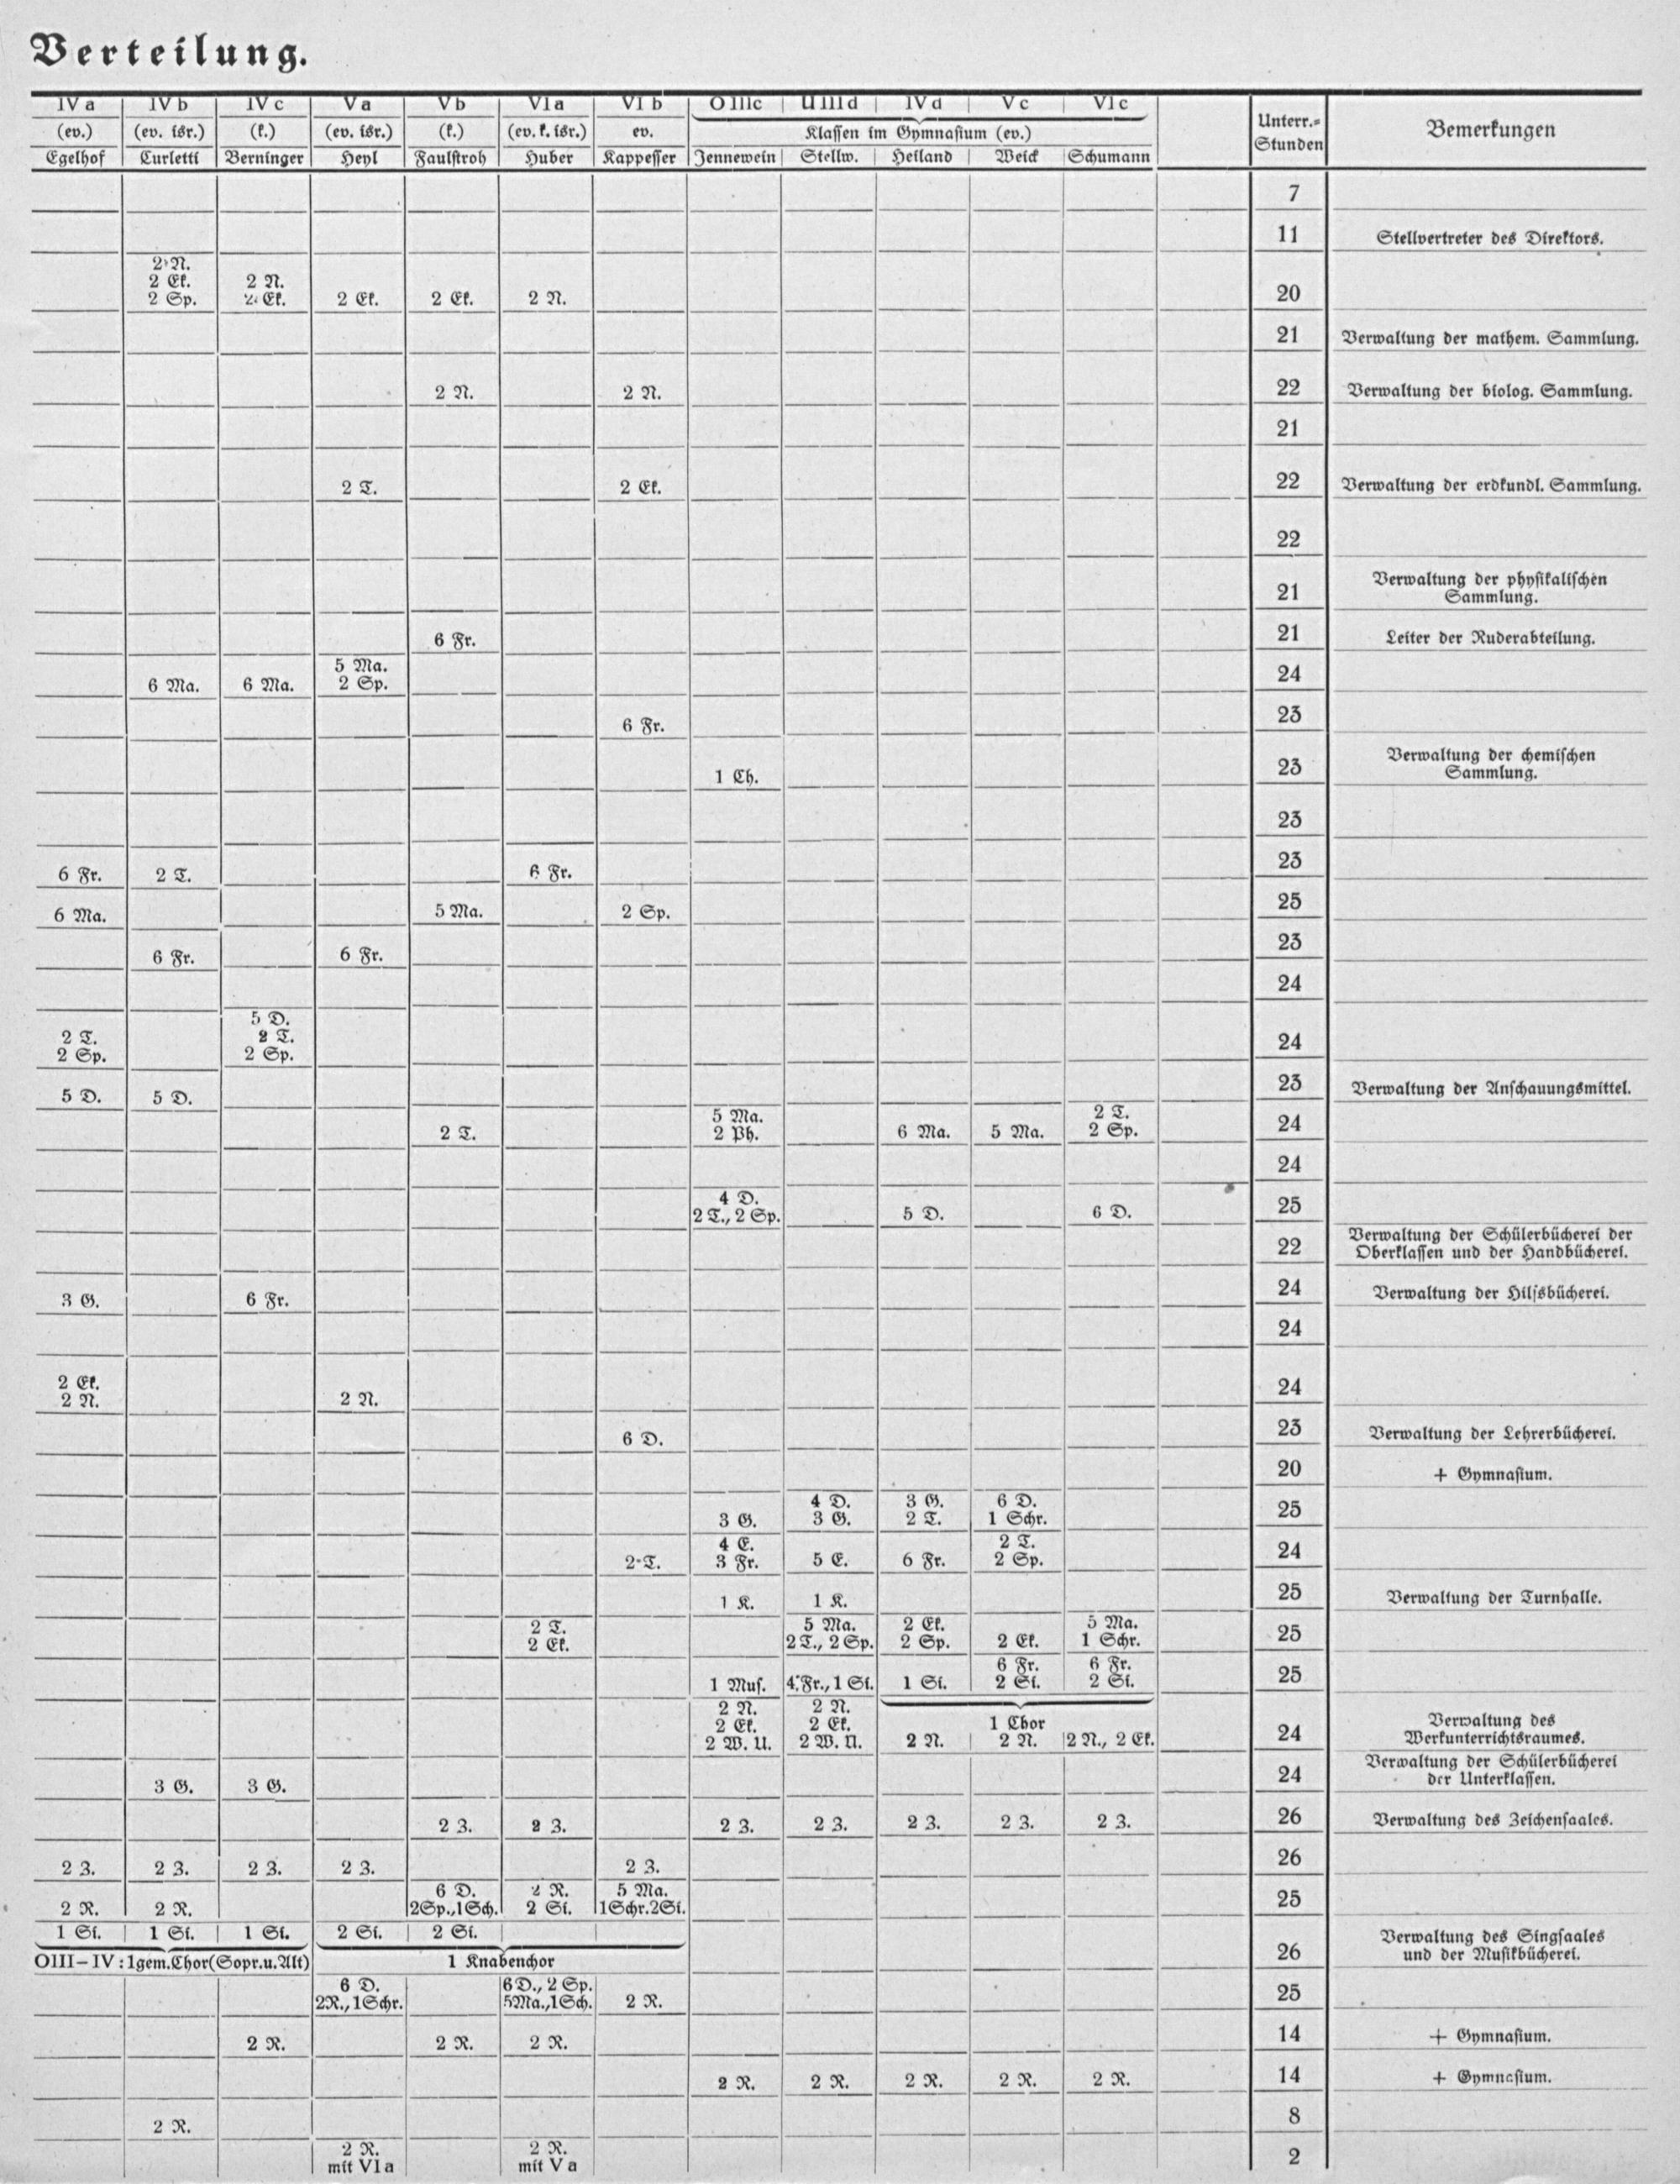 Verteilung.
IVa IVb IVc Va Vb VIa VIb OIIIc UIIId IVd Vc VIc
(ev.) (ev. isr.) (k.) (ev. isr.) (k.) (ev. k. isr.) ev. Klassen im Gymnasium (ev.) Unterr.= Stunden Bemerkungen
Egelhof Curletti Berninger Heyl Faulstroh Huber Kappesser Jennewein Stellw. Heiland Weick Schumann
7
11 Stellvertreter des Direktors.
2 N.
2 Ek. 2 N.
2 Sp. 2 Ek. 2 Ek. 2 Ek. 2 N. 20
21 Verwaltung der mathem. Sammlung.
2 N. 2 N. 22 Verwaltung der biolog. Sammlung.
21
2 T. 2 Ek. 22 Verwaltung der erdkundl. Sammlung.
22
Verwaltung der physikalischen
21 Sammlung.
6 Fr. 21 Leiter der Ruderabteilung.
5 Ma.
6 Ma. 6 Ma. 2 Sp. 24
6 Fr. 23
Verwaltung der chemischen
1 Ch. 23 Sammlung.
23
6 Fr. 2 T. 6 Fr. 23
6 Ma. 5 Ma. 2 Sp. 25
6 Fr. 6 Fr. 23
24
5 D.
2 T. 2 T.
2 Sp. 2 Sp. 24
5 D. 5 D. 23 Verwaltung der Anschauungsmittel.
5 Ma. 2 T.
2 T. 2 Ph. 6 Ma. 5 Ma. 2 Sp. 24
24
4 D.
2 T., 2 Sp. 5 D. 6 D. 25
Verwaltung der Schülerbücherei der
22 Oberklassen und der Handbücherei.
3 G. 6 Fr. 24 Verwaltung der Hilfsbücherei.
24
2 Ek.
2 N. 2 N. 24
6 D. 23 Verwaltung der Lehrerbücherei.
20 + Gymnasium.
4 D. 3 G. 6 D.
3 G. 3 G. 2 T. 1 Schr. 25
4 E. 2 T.
2 T. 3 Fr. 5 E. 6 Fr. 2 Sp. 24
1 K. 1 K. 25 Verwaltung der Turnhalle.
2 T. 5 Ma. 2 Ek. 5 Ma.
2 Ek. 2 T., 2 Sp. 2 Sp. 2 Ek. 1 Schr. 25
6 Fr. 6 Fr.
1 Mus. 4 Fr., 1 Si. 1 Si. 2 Si. 2 Si. 25
2 N. 2 N.
2 Ek. 2 Ek. 1 Chor Verwaltung des
2 W. U. 2 W. U. 2 N. 2 N. 2 N., 2 Ek. 24 Werkunterrichtsraumes.
Verwaltung der Schülerbücherei
3 G. 3 G. 24 der Unterklassen.
2 Z. 2 Z. 2 Z. 2 Z. 2 Z. 2 Z. 2 Z. 26 Verwaltung des Zeichensaales.
2 Z. 2 Z. 2 Z. 2 Z. 2 Z. 26
6 D. 2 R. 5 Ma.
2 R. 2 R. 2Sp.,1Sch. 2 Si. 1Schr.2Si. 25
1 Si. 1 Si. 1 Si. 2 Si. 2 Si. Verwaltung des Singsaales
OIII–IV: 1gem. Chor (Sopr. u. Alt) 1 Knabenchor 26 und der Musikbücherei.
6 D. 6D., 2 Sp.
2R., 1Schr. 5Ma.,1Sch. 2 R. 25
2 R. 2 R. 2 R. 14 + Gymnasium.
2 R. 2 R. 2 R. 2 R. 2 R. 14 + Gymnasium.
2 R. 8
2 R. 2 R.
mit VIa mit Va 2